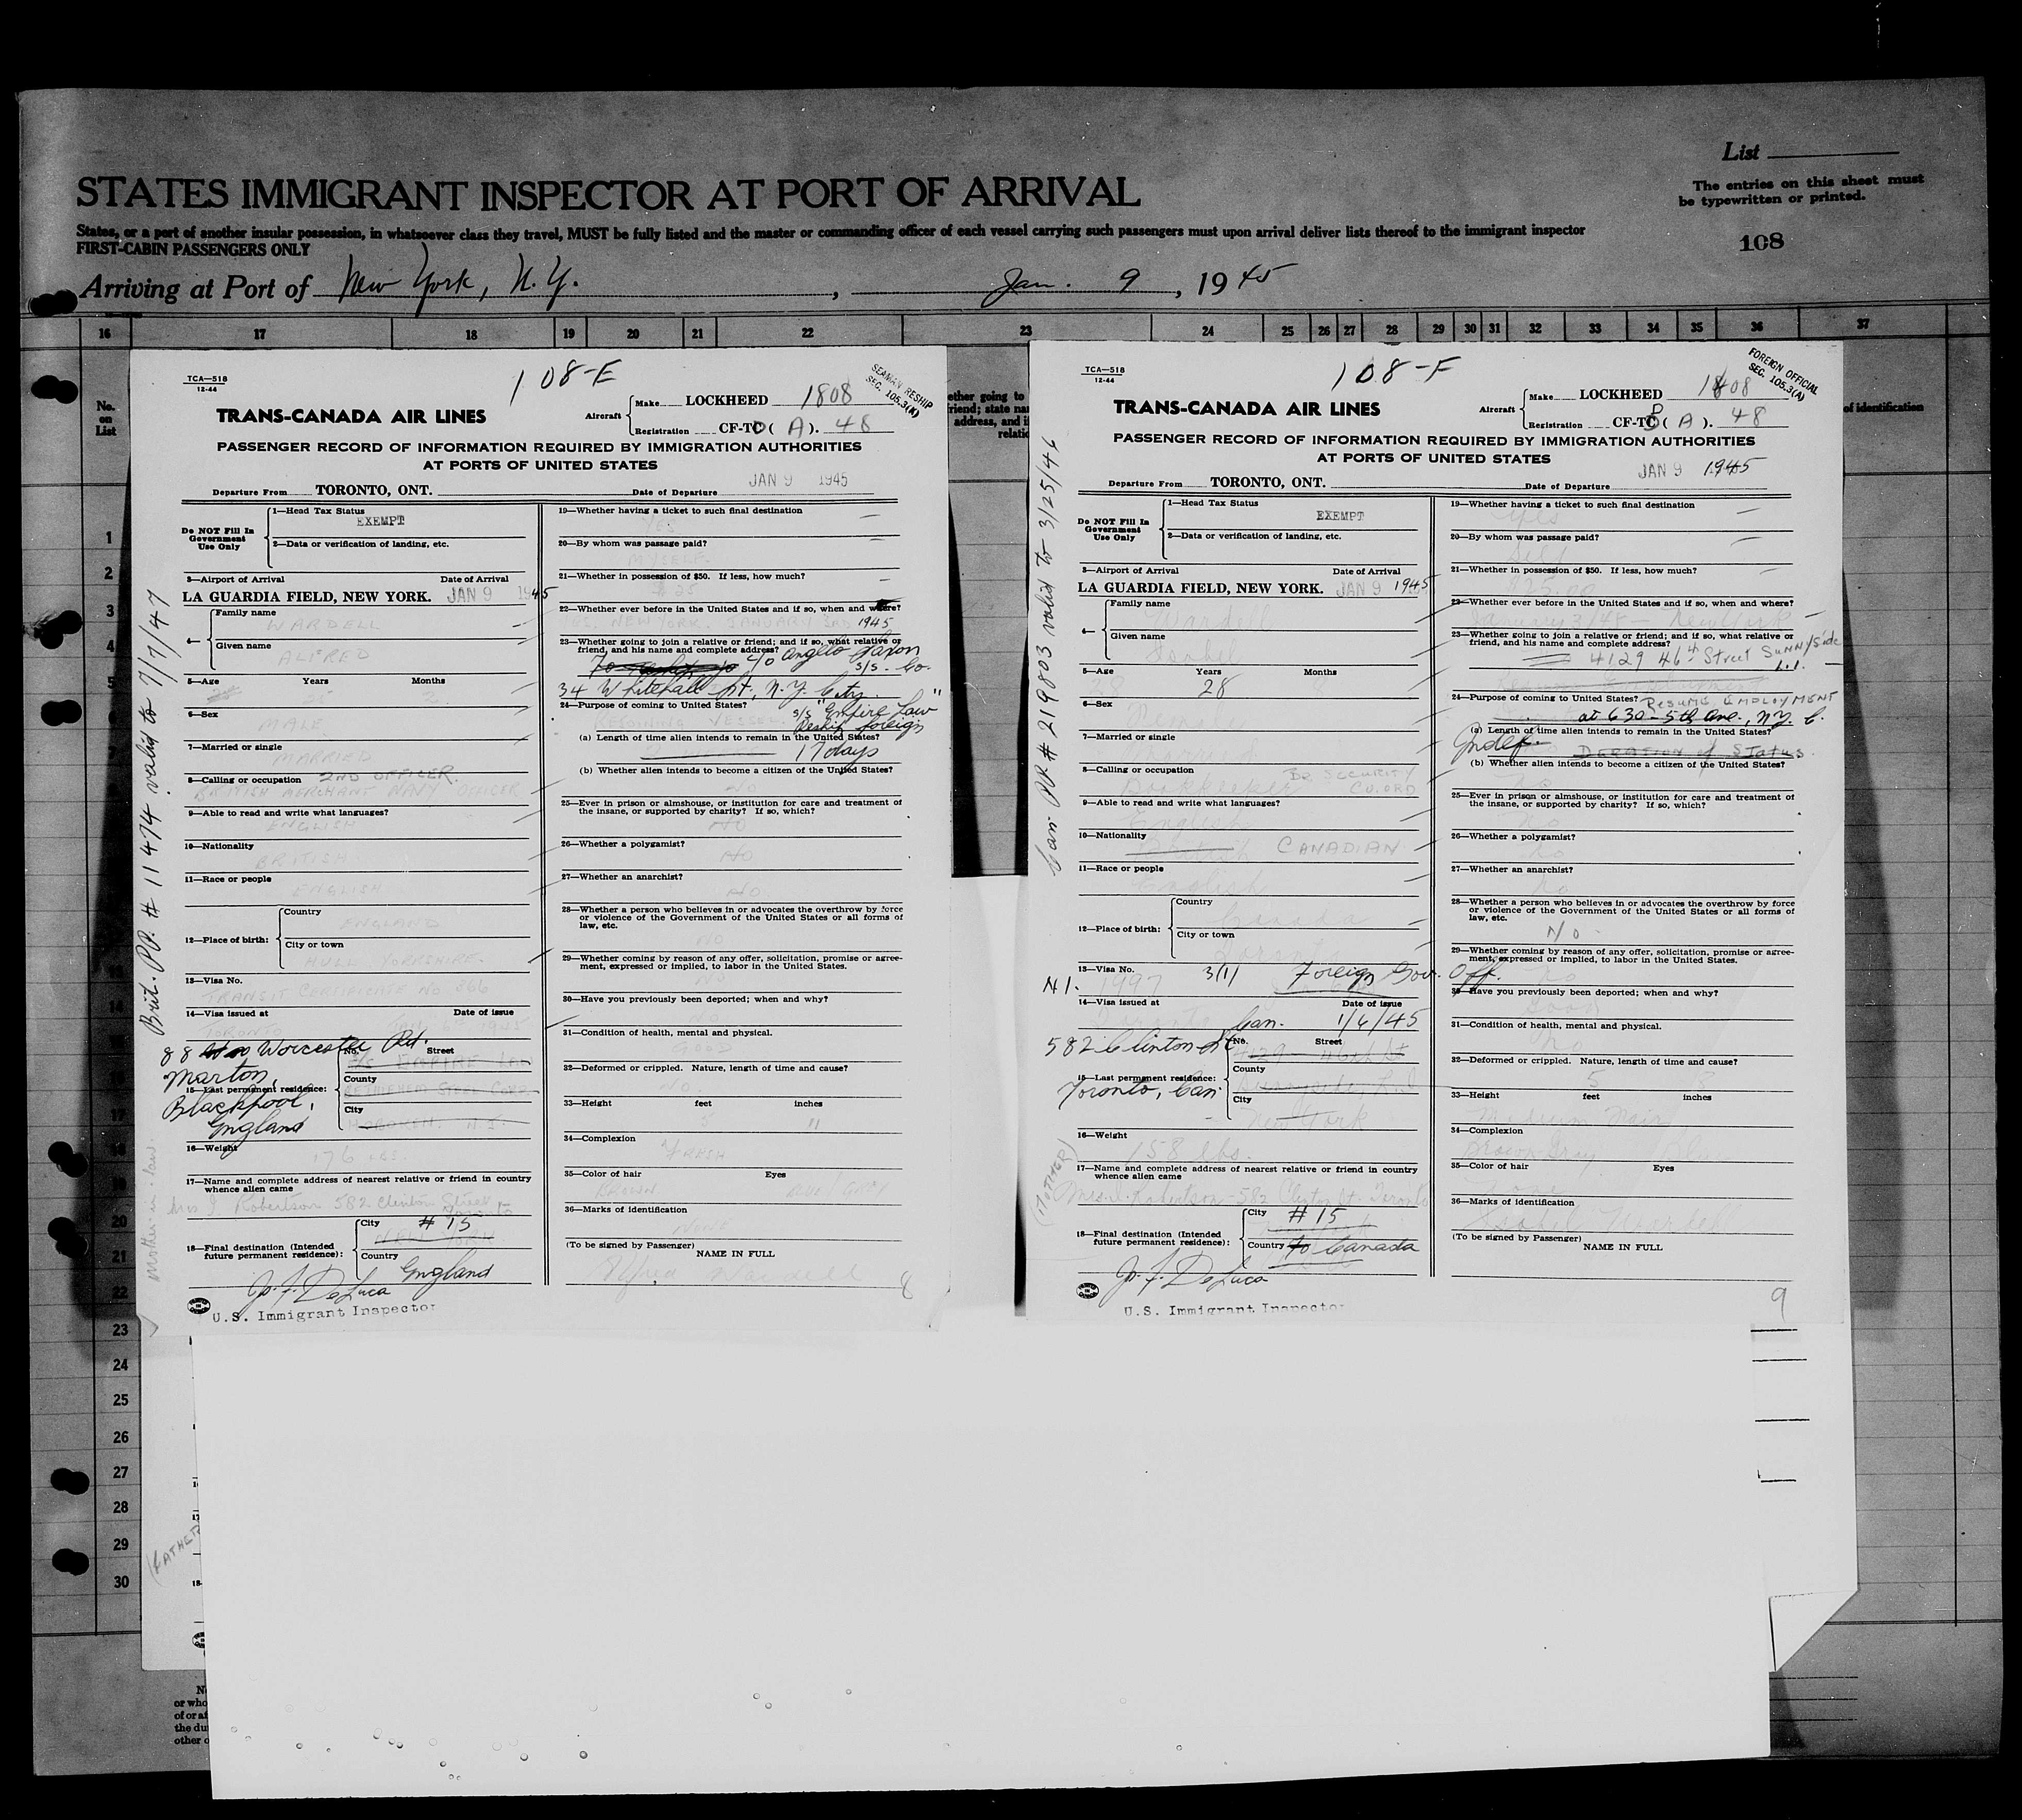 List
The entries on this sheet must
be typewritten or printed.
STATES IMMIGRANT INSPECTOR AT PORT OF ARRIVAL
States, or a port of another insular possession, in whatsoever class they travel, MUST be fully listed and the master or commanding officer of each vessel carrying such passengers must upon arrival deliver lists thereof to the immigrant inspector
FIRST-CABIN PASSENGERS ONLY
108
Arriving at Port of New York, N.Y., Jan. 9, 1945
16 17 18 19 20 21 22 23 24 25 26 27 28 29 30 31 32 33 34 35 36 37
No.
on
List
TCA—518
12-44
108-E
SEAMAN RESHIP
SEC. 105.3(K)
TRANS-CANADA AIR LINES
Aircraft
Make LOCKHEED 1808
Registration CF-TC (A). 48
PASSENGER RECORD OF INFORMATION REQUIRED BY IMMIGRATION AUTHORITIES
AT PORTS OF UNITED STATES
JAN 9 1945
Departure From TORONTO, ONT. Date of Departure
Do NOT Fill In
Government
Use Only
1—Head Tax Status
EXEMPT
2—Data or verification of landing, etc.
3—Airport of Arrival Date of Arrival
LA GUARDIA FIELD, NEW YORK. JAN 9 1945
4—
Family name
WARDELL
Given name
ALFRED
5—Age Years Months
6—Sex
MALE
7—Married or single
MARRIED
8—Calling or occupation 2ND OFFICER.
BRITISH MERCHANT NAVY OFFICER
9—Able to read and write what languages?
ENGLISH
10—Nationality
BRITISH
11—Race or people
ENGLISH
12—Place of birth:
Country
ENGLAND
City or town
HULL YORKSHIRE.
13—Visa No.
TRANSIT CERTIFICATE NO. 366
14—Visa issued at Date of issue
TORONTO
88 Worcester Rd.
Marton,
Blackpool,
England
15—Last permanent residence:
No. Street
S/S EMPIRE LAW
County
BETHLEHEM STEEL CORP.
City
HOBOKEN. N.J.
16—Weight
176 LBS.
17—Name and complete address of nearest relative or friend in country
whence alien came
Mrs J. Robertson 582 Clinton Street
Toronto
18—Final destination (Intended
future permanent residence):
City # 15
NEW YORK
Country
England
Jo. F. DeLuca
U.S. Immigrant Inspector
Brit. PP. # 11474 valid to 7/7/47
mother-in-law
19—Whether having a ticket to such final destination
YES
20—By whom was passage paid?
MYSELF.
21—Whether in possession of $50. If less, how much?
$25
22—Whether ever before in the United States and if so, when and where?
YES. NEW YORK. JANUARY 3RD 1945
23—Whether going to join a relative or friend; and if so, what relative or
friend, and his name and complete address?
c/o Anglo Saxon
s/s. Co.
34 Whitehall St., N.Y. City.
24—Purpose of coming to United States? s/s "Empire Law"
REJOINING VESSEL. Reship foreign
(a) Length of time alien intends to remain in the United States?
17 days
(b) Whether alien intends to become a citizen of the United States?
NO
25—Ever in prison or almshouse, or institution for care and treatment of
the insane, or supported by charity? If so, which?
NO
26—Whether a polygamist?
NO
27—Whether an anarchist?
NO
28—Whether a person who believes in or advocates the overthrow by force
or violence of the Government of the United States or all forms of
law, etc.
NO
29—Whether coming by reason of any offer, solicitation, promise or agree-
ment, expressed or implied, to labor in the United States.
NO
30—Have you previously been deported; when and why?
NO
31—Condition of health, mental and physical.
GOOD
32—Deformed or crippled. Nature, length of time and cause?
NO.
33—Height feet inches
11
34—Complexion
FRESH
35—Color of hair Eyes
BROWN
36—Marks of identification
NONE
(To be signed by Passenger)
NAME IN FULL
Alfred Wardell
8
TCA—518
12-44
108-F
FOREIGN OFFICIAL
SEC. 105.3(A)
TRANS-CANADA AIR LINES
Aircraft
Make LOCKHEED 1808
Registration CF-TC (A). 48
PASSENGER RECORD OF INFORMATION REQUIRED BY IMMIGRATION AUTHORITIES
AT PORTS OF UNITED STATES
JAN 9 1945
Departure From TORONTO, ONT. Date of Departure
Do NOT Fill In
Government
Use Only
1—Head Tax Status
EXEMPT
2—Data or verification of landing, etc.
3—Airport of Arrival Date of Arrival
LA GUARDIA FIELD, NEW YORK. JAN 9 1945
4—
Family name
Wardell
Given name
Isobel
5—Age Years Months
28
6—Sex
7—Married or single
8—Calling or occupation BR. SECURITY
Bookkeeper CO.ORD
9—Able to read and write what languages?
English
10—Nationality
British CANADIAN
11—Race or people
English
12—Place of birth:
Country
Canada
City or town
Toronto
13—Visa No. 3(1) Foreign Gov. Off.
N I. 1997
14—Visa issued at Date of issue
Toronto Can. 1/6/45
582 Clinton St
Toronto, Can.
15—Last permanent residence:
No. Street
4129 - 46th St
County
Sunnyside, L.I.
City
New York
16—Weight
158 lbs.
17—Name and complete address of nearest relative or friend in country
whence alien came
Mrs. J. Robertson - 582 Clinton St. Toronto
18—Final destination (Intended
future permanent residence):
City # 15
Country Canada
Jo. F. DeLuca
U.S. Immigrant Inspector
Can. PP. # 219803 valid to 3/25/46
(MOTHER)
19—Whether having a ticket to such final destination
Yes
20—By whom was passage paid?
Self
21—Whether in possession of $50. If less, how much?
25.00
22—Whether ever before in the United States and if so, when and where?
January 3/45 — New York
23—Whether going to join a relative or friend; and if so, what relative or
friend, and his name and complete address?
4129 46th Street SUNNYSide
L.I.
24—Purpose of coming to United States? RESUME EMPLOYMENT
at 630-5th Ave., N.Y. C.
(a) Length of time alien intends to remain in the United States?
Indef. DURATION of STATUS.
(b) Whether alien intends to become a citizen of the United States?
No
25—Ever in prison or almshouse, or institution for care and treatment of
the insane, or supported by charity? If so, which?
No
26—Whether a polygamist?
No
27—Whether an anarchist?
No
28—Whether a person who believes in or advocates the overthrow by force
or violence of the Government of the United States or all forms of
law, etc.
NO
29—Whether coming by reason of any offer, solicitation, promise or agree-
ment, expressed or implied, to labor in the United States.
No
30—Have you previously been deported; when and why?
Good
31—Condition of health, mental and physical.
No
32—Deformed or crippled. Nature, length of time and cause?
5 8
33—Height feet inches
Medium
34—Complexion
Brown Gray
35—Color of hair Eyes
None
36—Marks of identification
Isobel Wardell
(To be signed by Passenger)
NAME IN FULL
9
of identification
1
2
3
4
5
14
17
20
21
22
23
24
25
26
27
28
29
30
(FATHER
or who
of or af
the du
other o